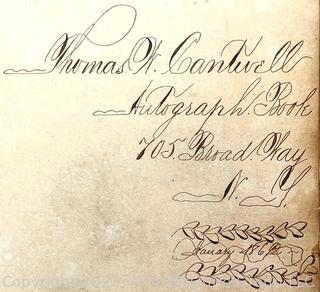 Thomas W. Cantwell
Autograph. Book
705 Broad. Way
N. Y.
January 1862